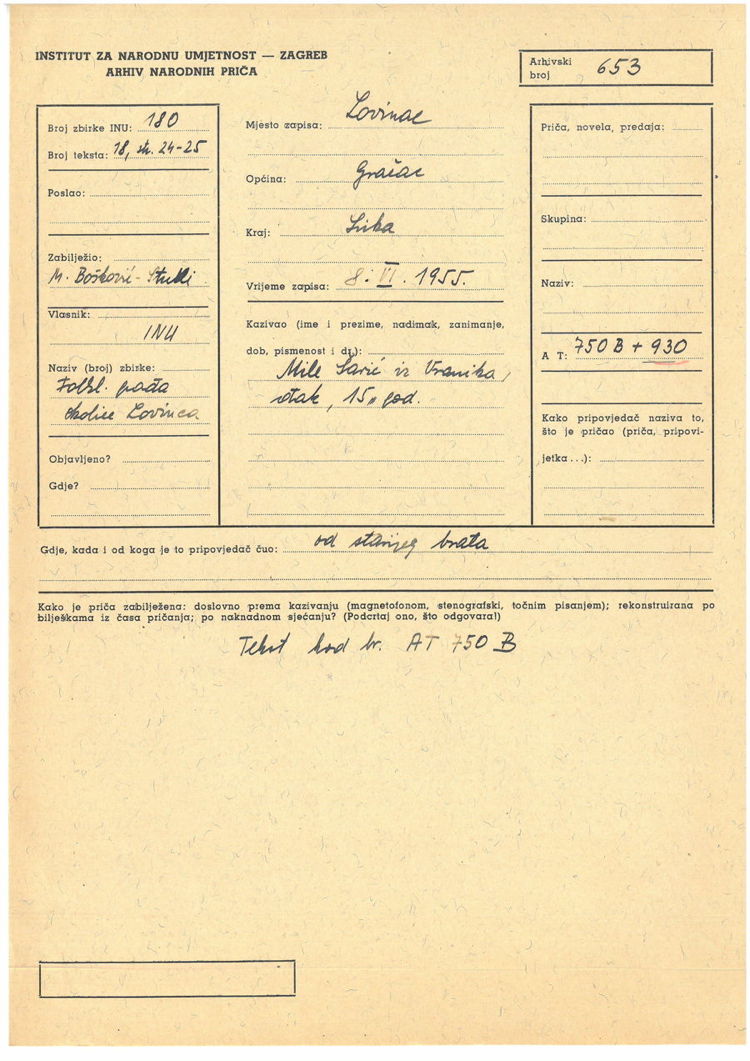 INSTITUT ZA NARODNU UMJETNOST — ZAGREB
ARHIV NARODNIH PRIČA
Arhivski
broj 653
Broj zbirke INU: 180
Broj teksta: 18, str. 24-25
Poslao:
Zabilježio:
M. Bošković-Stulli
Vlasnik:
INU
Naziv (broj) zbirke:
Folkl. građa
okolice Lovinca
Objavljeno?
Gdje?
Mjesto zapisa: Lovinac
Općina: Gračac
Kraj: Lika
Vrijeme zapisa: 8. VI. 1955.
Kazivao (ime i prezime, nadimak, zanimanje,
dob, pismenost i dr.):
Mile Šarić iz Vranika,
đak, 15 god.
Priča, novela, predaja:
Skupina:
Naziv:
A T: 750 B + 930
Kako pripovjedač naziva to,
što je pričao (priča, pripovi-
jetka...):
Gdje, kada i od koga je to pripovjedač čuo: od starijeg brata
Kako je priča zabilježena: doslovno prema kazivanju (magnetofonom, stenografski, točnim pisanjem); rekonstruirana po
bilješkama iz časa pričanja; po naknadnom sjećanju? (Podcrtaj ono, što odgovara!)
Tekst kod br. AT 750 B